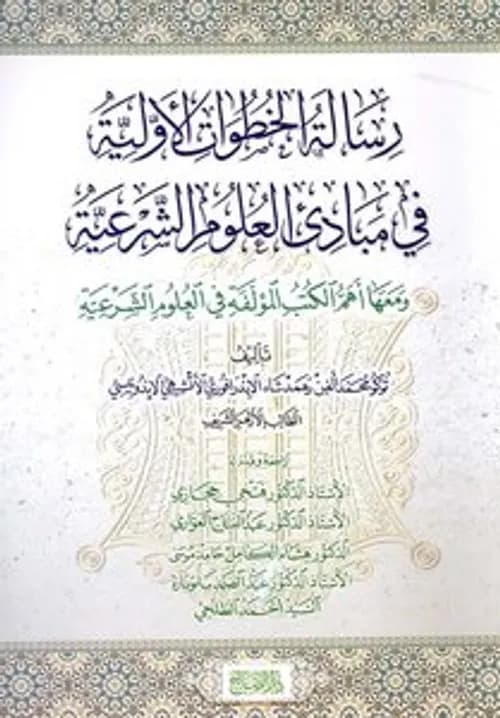 رِسَالَةُ الخُطُوَاتِ الأَوَّلِيَّةِ
فِي مَبَادِئِ العُلُومِ الشَّرْعِيَّةِ
وَمَعَهَا أَهَمُّ الكُتُبِ المُؤَلَّفَةِ فِي العُلُومِ الشَّرْعِيَّةِ
تأليف
توكو محمد الدين الإندونيسي
راجعه وقدم له
الأستاذ الدكتور فتحي حجازي
الأستاذ الدكتور عبد الفتاح العواري
الدكتور هشام الكامل حامد موسى
الأستاذ الدكتور
السيد